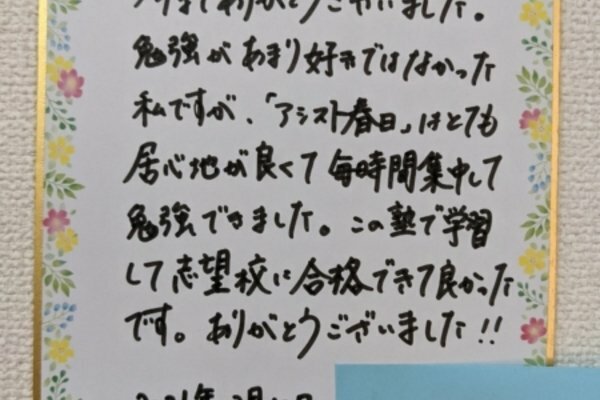 今までありがとうございました。
勉強があまり好きではなかった
私ですが、「アシスト春日」はとても
居心地が良くて毎時間集中して
勉強できました。この塾で学習
して志望校に合格できて良かった
です。ありがとうございました!!